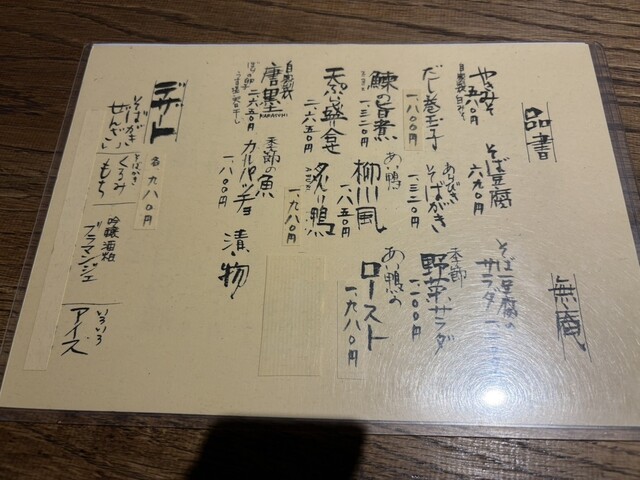 品書
無庵
やきみそ
五八〇円
自家製白みそ
そば豆腐
六九〇円
そば豆腐の
サラダ
だし巻玉子
一、一八〇円
あらびき
そばがき
一、三二〇円
季節
野菜サラダ
一、一〇〇円
鰊の旨煮
一、三二〇円
あい鴨
柳川風
一、八五〇円
あい鴨の
ロースト
一、九八〇円
天ぷら盛合せ
二、六五〇円
炙り鴨
一、九八〇円
自家製
唐墨
KARASUMI
ぼらの卵
二、六五〇円
季節の魚
カルパッチョ
一、八〇〇円
漬物
デザート
各、九八〇円
そばがき
ぜんざい
そばがき
くるみ
もち
吟醸酒粕
ブラマンジェ
いろいろ
アイス